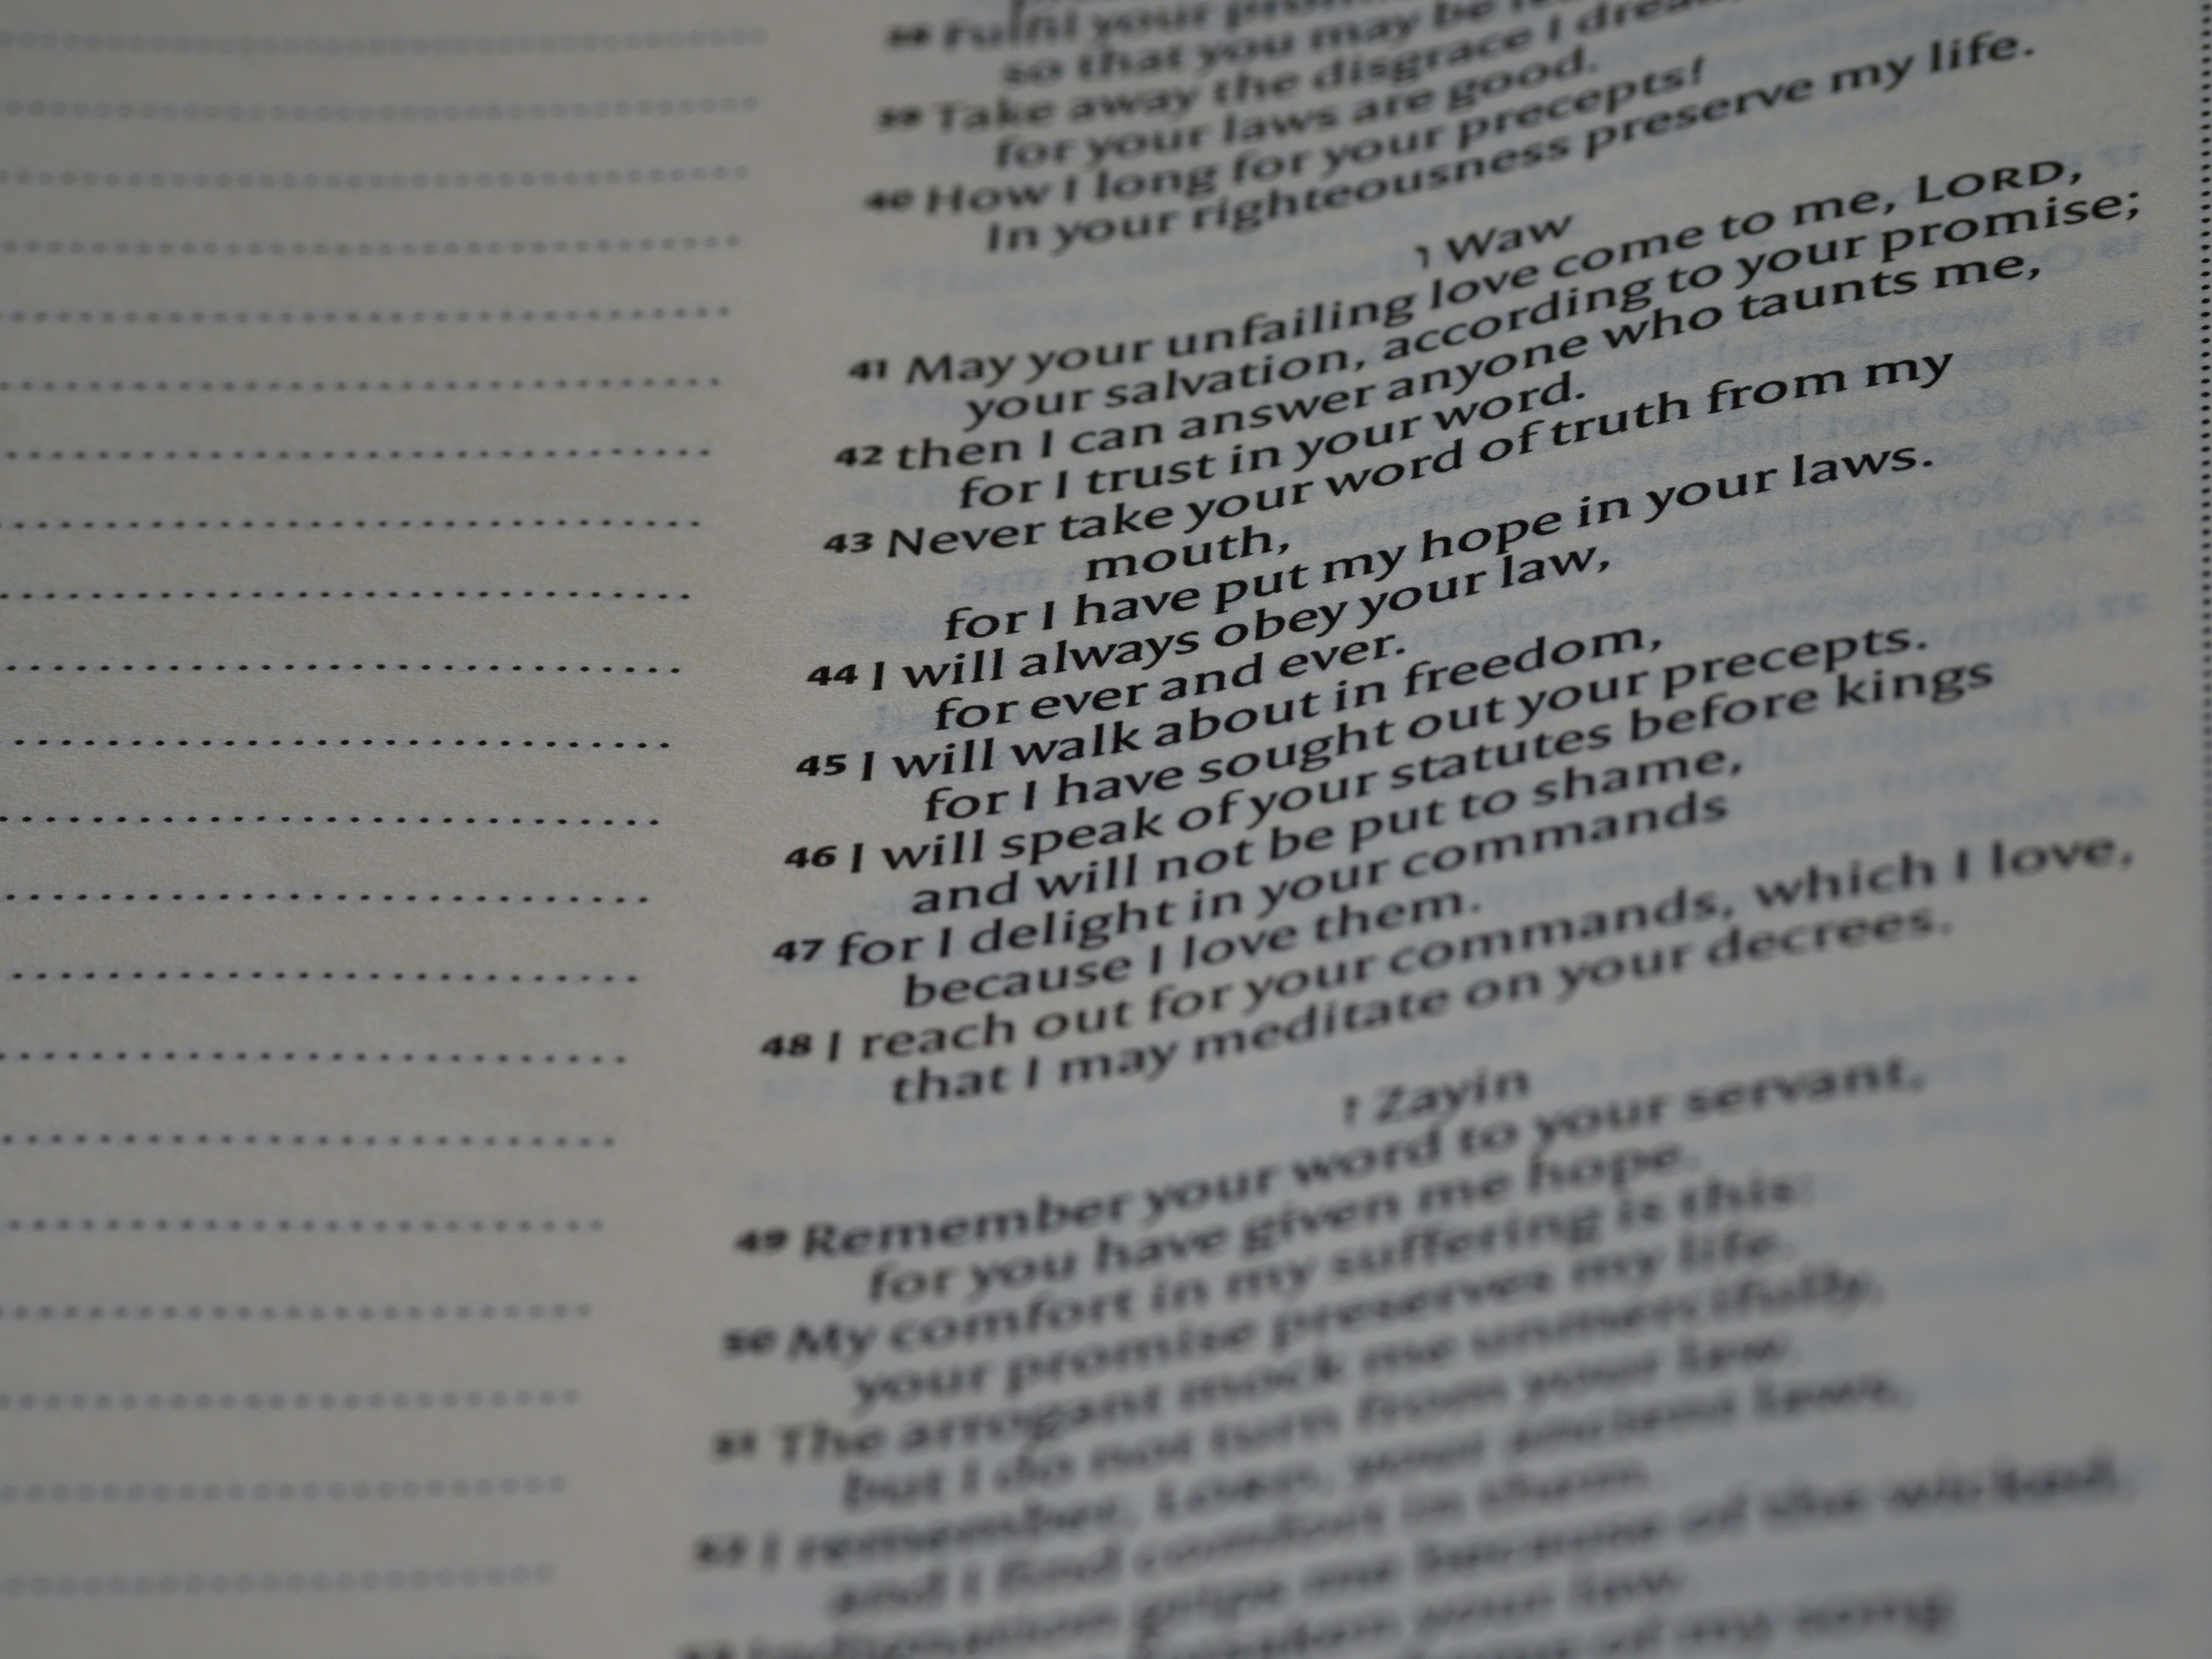 38 Fulfil your
so that you may be
39 Take away the disgrace I dread,
for your laws are good.
40 How I long for your precepts!
In your righteousness preserve my life.
ו Waw
41 May your unfailing love come to me, LORD,
your salvation, according to your promise;
42 then I can answer anyone who taunts me,
for I trust in your word.
43 Never take your word of truth from my
mouth,
for I have put my hope in your laws.
44 I will always obey your law,
for ever and ever.
45 I will walk about in freedom,
for I have sought out your precepts.
46 I will speak of your statutes before kings
and will not be put to shame,
47 for I delight in your commands
because I love them.
48 I reach out for your commands, which I love,
that I may meditate on your decrees.
ז Zayin
49 Remember your word to your servant,
for you have given me hope.
50 My comfort in my suffering is this:
your promise preserves my life.
51 The arrogant mock me unmercifully,
but I do not turn from your law.
52 I remember, LORD, your ancient laws,
and I find comfort in them.
53 Indignation grips me because of the wicked,
your law.
of my song